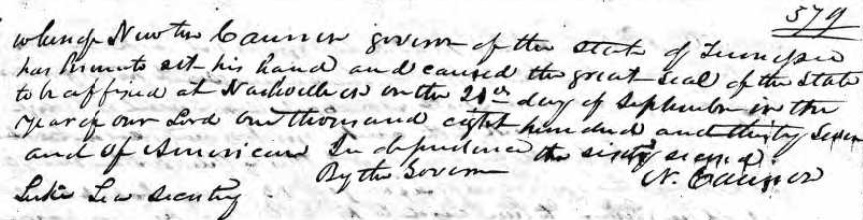 579
whereof Newton Cannon govern of the state of Tennessee
has hereunto set his hand and caused the great seal of the State
to be affixed at Nashville on the day of September in the
year of our Lord one thousand eight hundred and thirty seven
and of American Independence the sixty second
By the Govern N. Cannon
Luke Lea Secretry